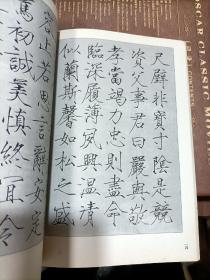 尺璧非寶寸陰是競
資父事君曰嚴與敬
孝當竭力忠則盡命
臨深履薄夙興温清
似蘭斯馨如松之盛
容止若思言辭安定
初誠美慎終宜令
OSCAR CLASSIC MOVIE
CONTENTS